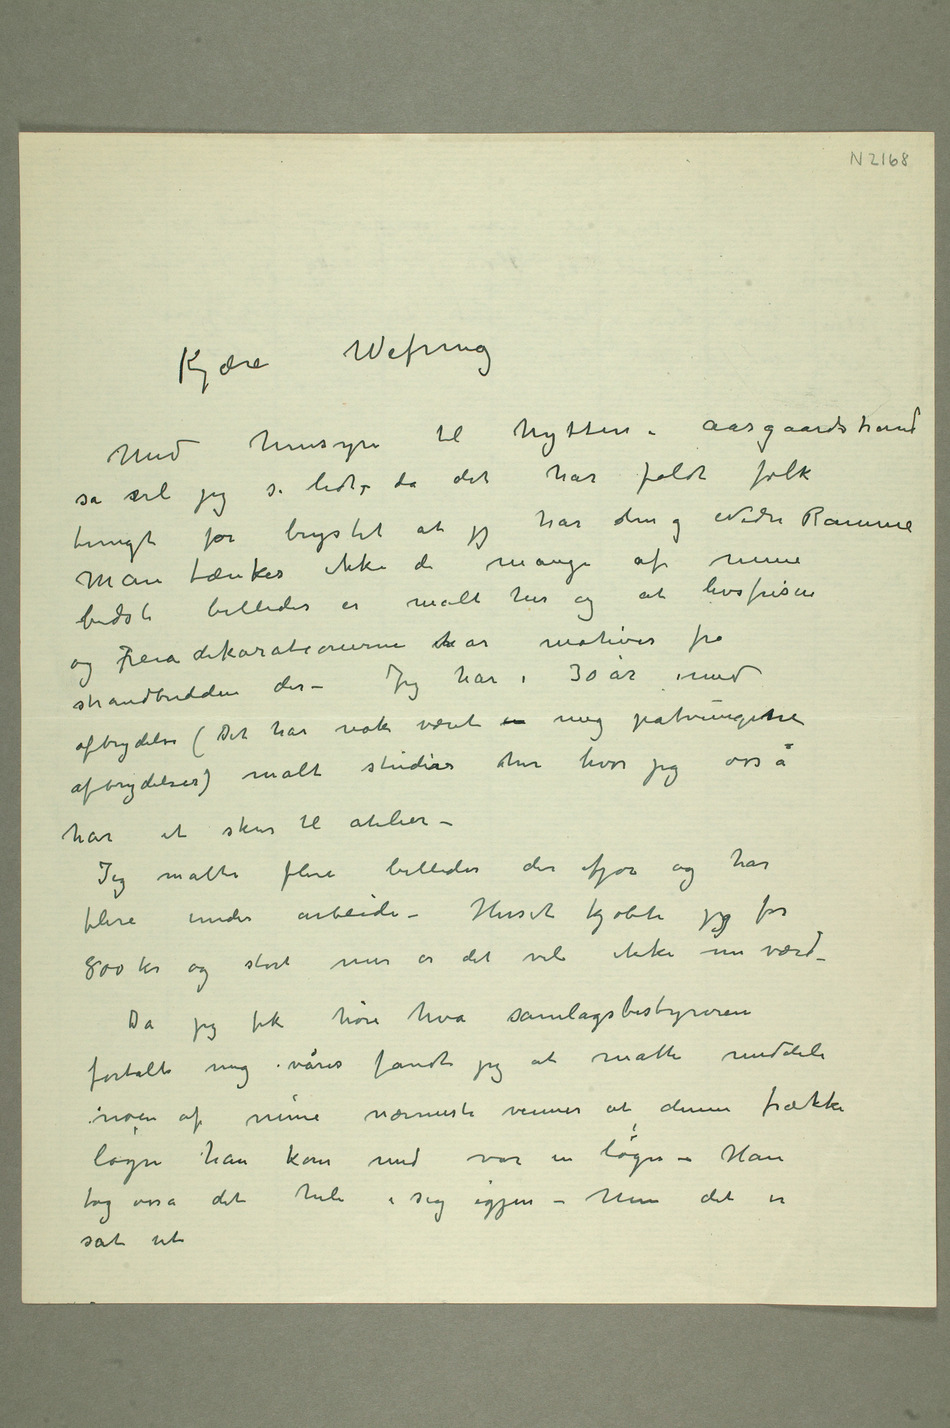 N 2168
Kjære Wefring
Med hensyn til hytten i Aasgaardstrand
så vil jeg si lidt, da det har faldt folk
tungt for brystet at jeg har den og Nedre Ramme
Man tænker ikke de mange af mine
bedste billeder er malt her og at livsfrisen
og Freiadekorationerne har motiver fra
strandbredden der – Jeg har i 30 år med
afbrydelse (Det har nok været mig påtvungetne
afbrydelser) malt studier her hvor jeg osså
har et skur til atelier –
Jeg malte flere billeder der ifjor og har
flere under arbeide – Huset kjøbte jeg for
800 kr og stort mer er det vel ikke nu værd –
Da jeg fik høre hva samlagsbestyreren
fortalte mig i våres fandt jeg at måtte meddele
noen af mine nærmeste venner at denne frække
løgn han kom med var en løgn – Han
tog osså det hele i sig igjen – Men det er
sat ut